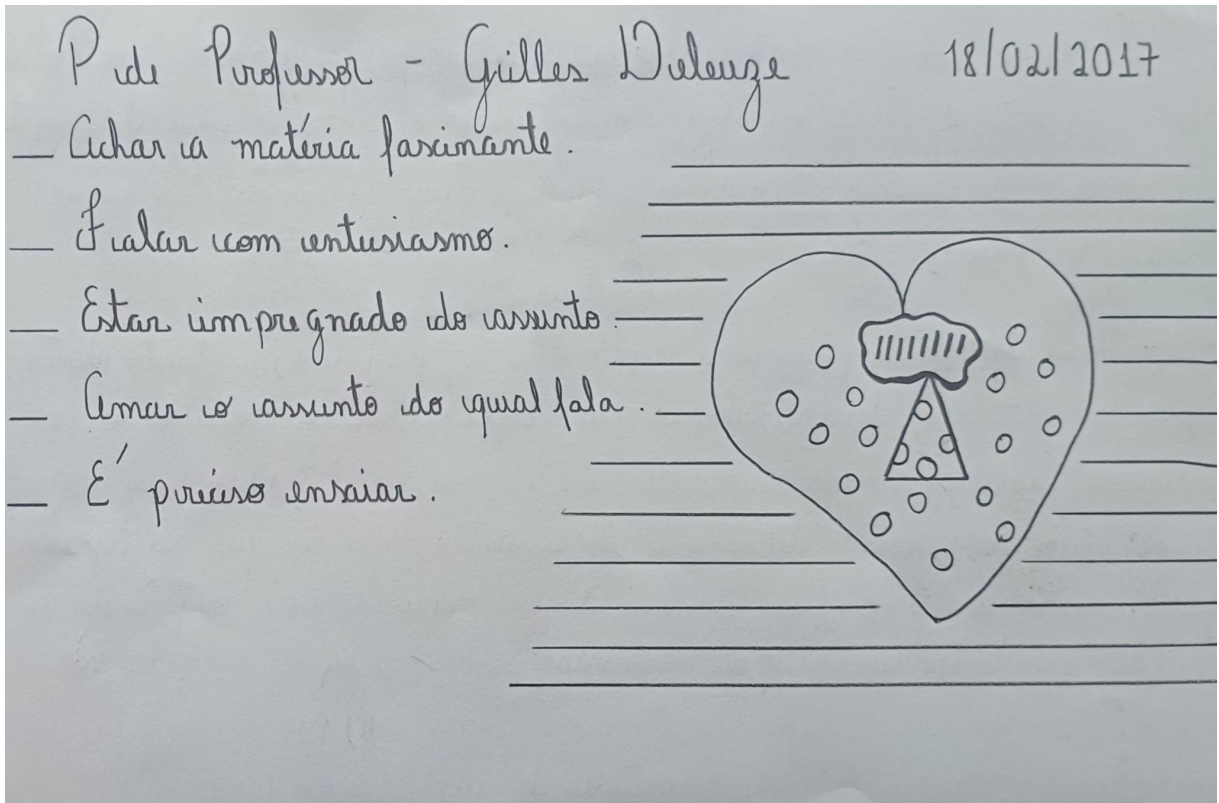 P de Professor - Gilles Deleuze 18/02/2017
— Achar a matéria fascinante.
— Falar com entusiasmo.
— Estar impregnado do assunto.
— Amar o assunto do qual fala.
— É preciso ensaiar.